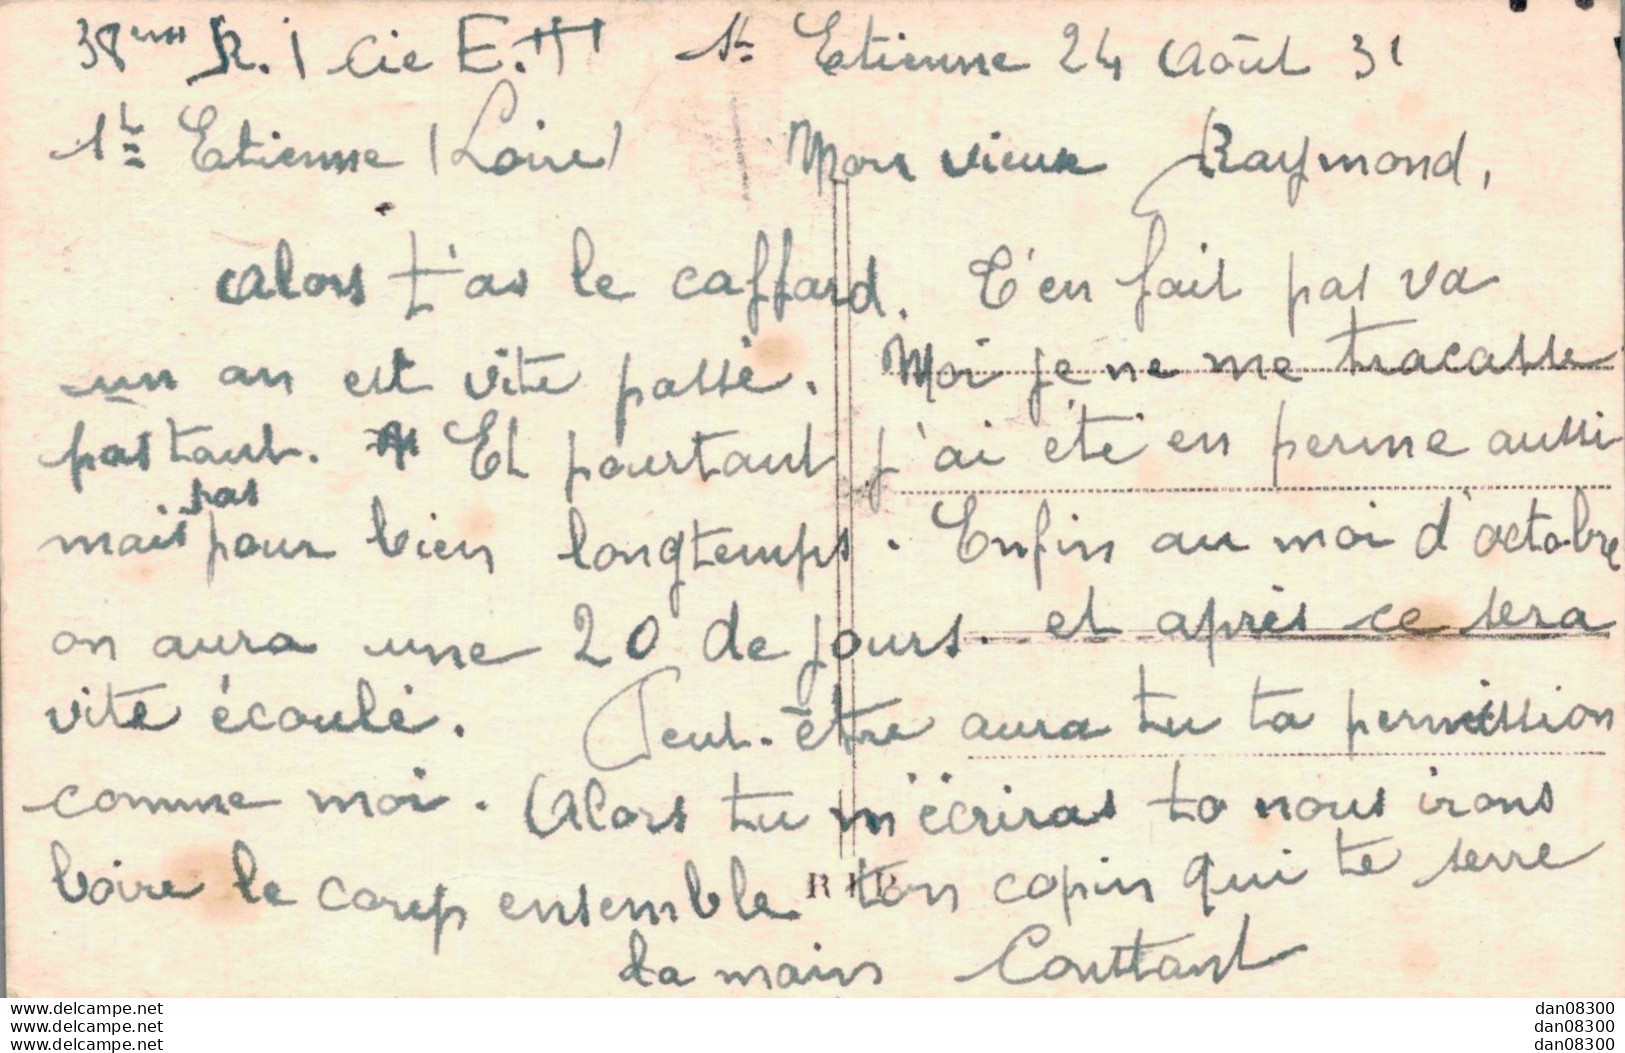 38eme R.I cie E.H St Etienne 24 Août 31
St Etienne (Loire) Mon vieux Raymond,
Alors t'as le caffard. T'en fait pas va
un an est vite passé. Moi je ne me tracasse
pas tant. Et pourtant j'ai été en perme aussi
mais pas pour bien longtemps. Enfin au moi d'octobre
on aura une 20 de jours. et après ce sera
vite écoulé. Peut-être aura tu ta permission
comme moi. Alors tu m'écriras to nous irons
boire le coup ensemble ton copin qui te serre
la main Couttant
www.delcampe.net
www.delcampe.net
www.delcampe.net
dan08300
dan08300
dan08300